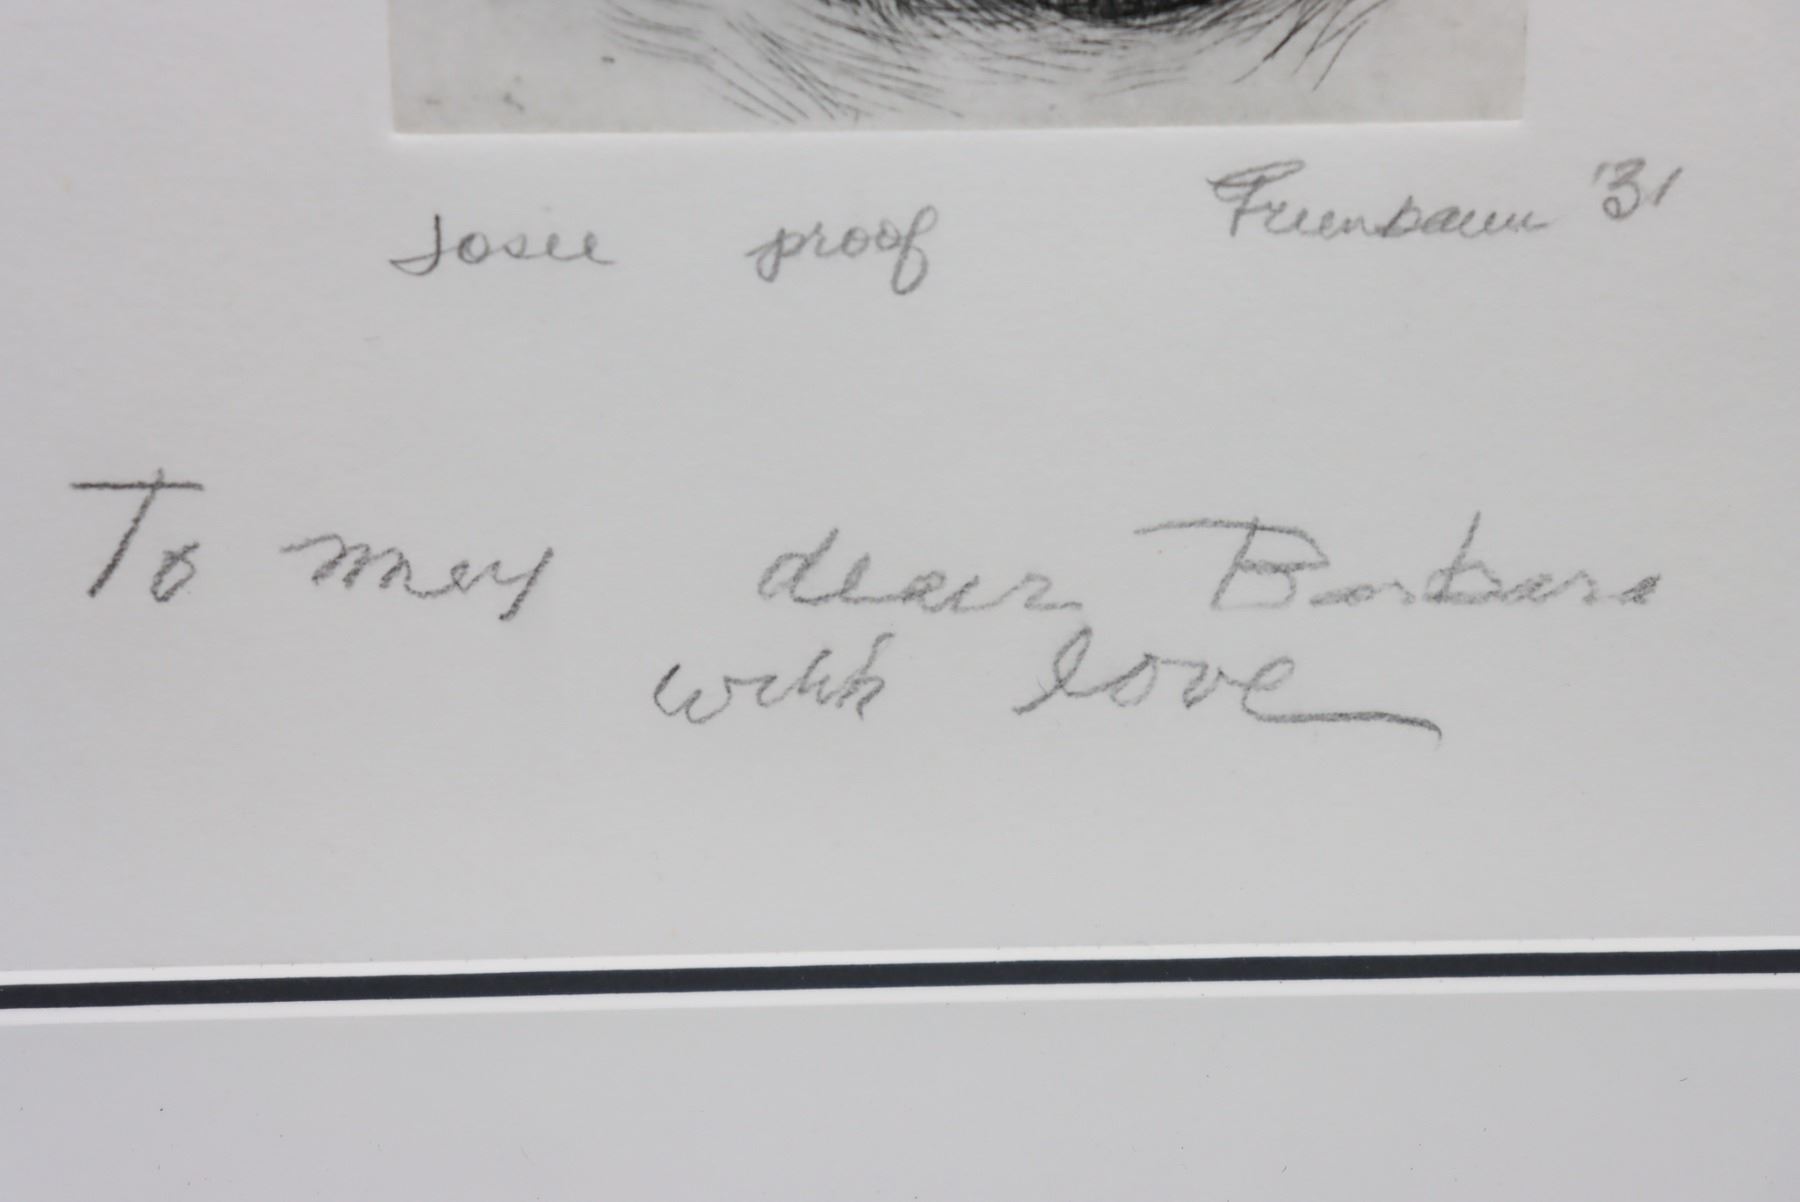 Josie proof Greenbaum '31
To my dear Barbara
with love